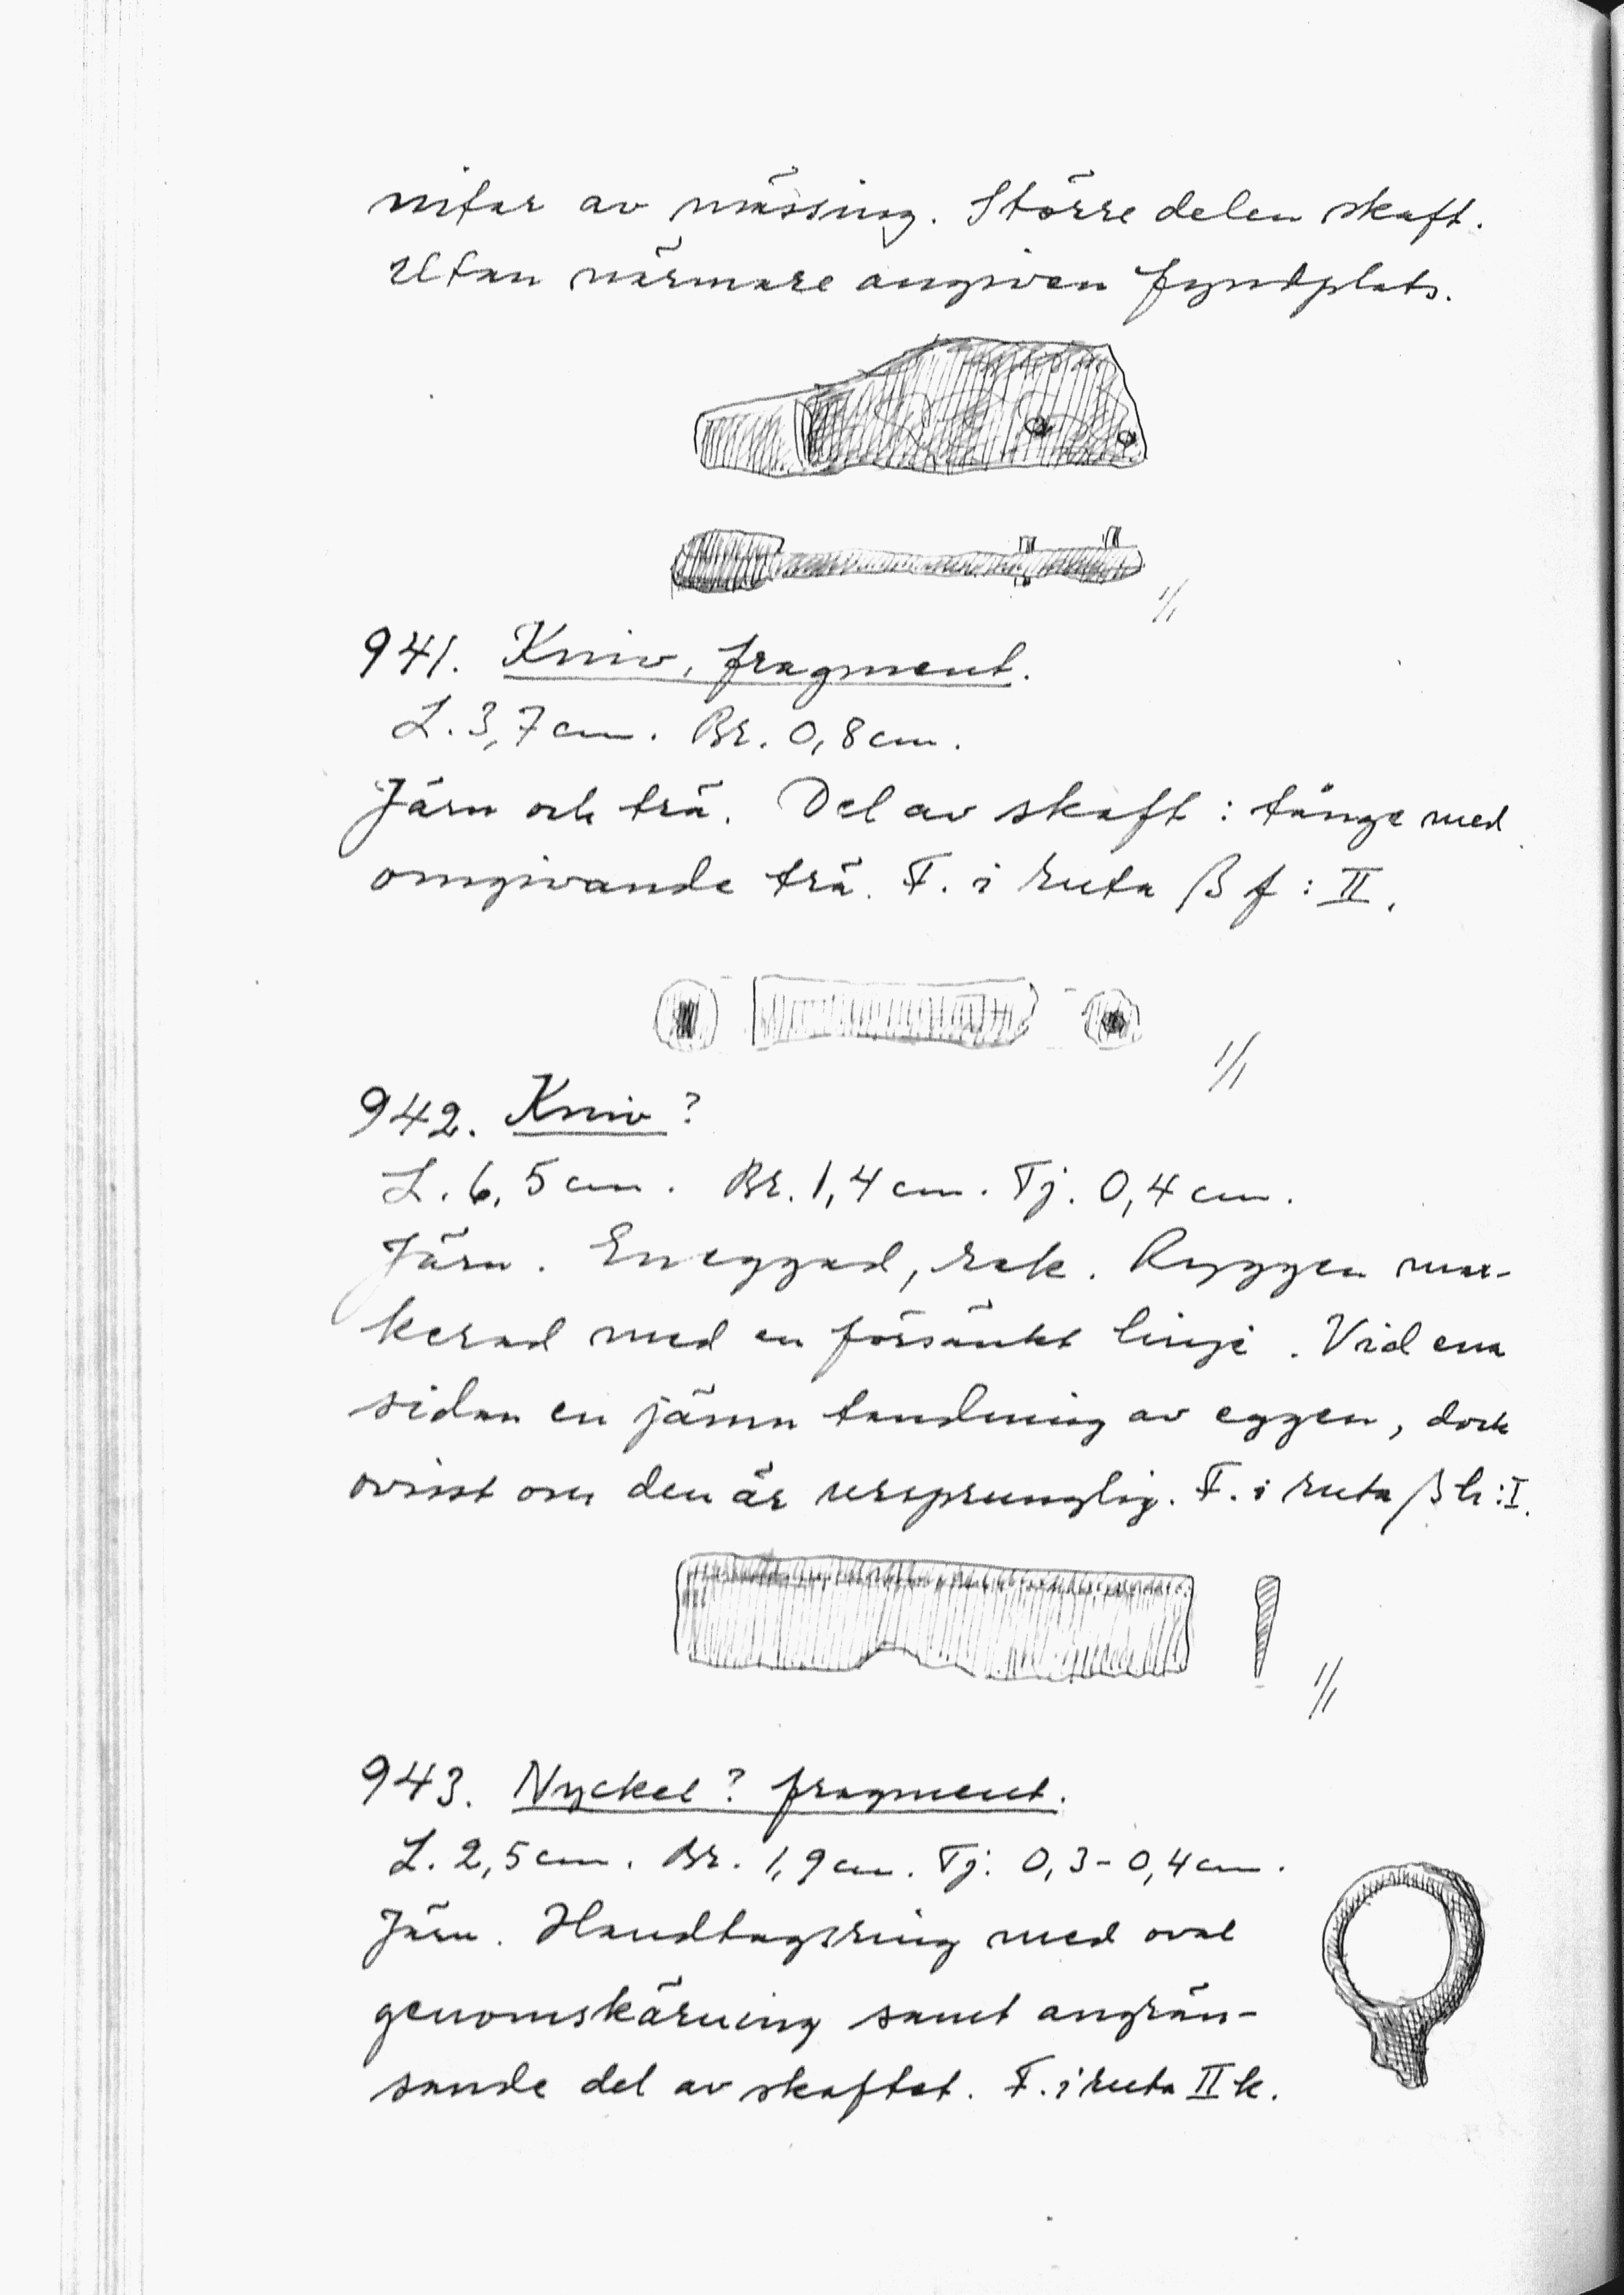 nitar av mässing. Större delen skaft.
Utan närmare angiven fyndplats.
1/1
941. Kniv, fragment.
L. 3,7 cm. Br. 0,8 cm.
Järn och trä. Del av skaft: tånge med
omgivande trä. F. i ruta β f: II.
1/1
942. Kniv?
L. 6,5 cm. Br. 1,4 cm. Tj. 0,4 cm.
Järn. Eneggad, rak. Ryggen mar-
kerad med en försänkt linje. Vid ena
sidan en jämn tandning av eggen, dock
ovisst om den är ursprunglig. F. i ruta β h: I.
1/1
943. Nyckel? fragment.
L. 2,5 cm. Br. 1,9 cm. Tj. 0,3-0,4 cm.
Järn. Handtagsring med oval
genomskärning samt angrän-
sande del av skaftet. F. i ruta II k.